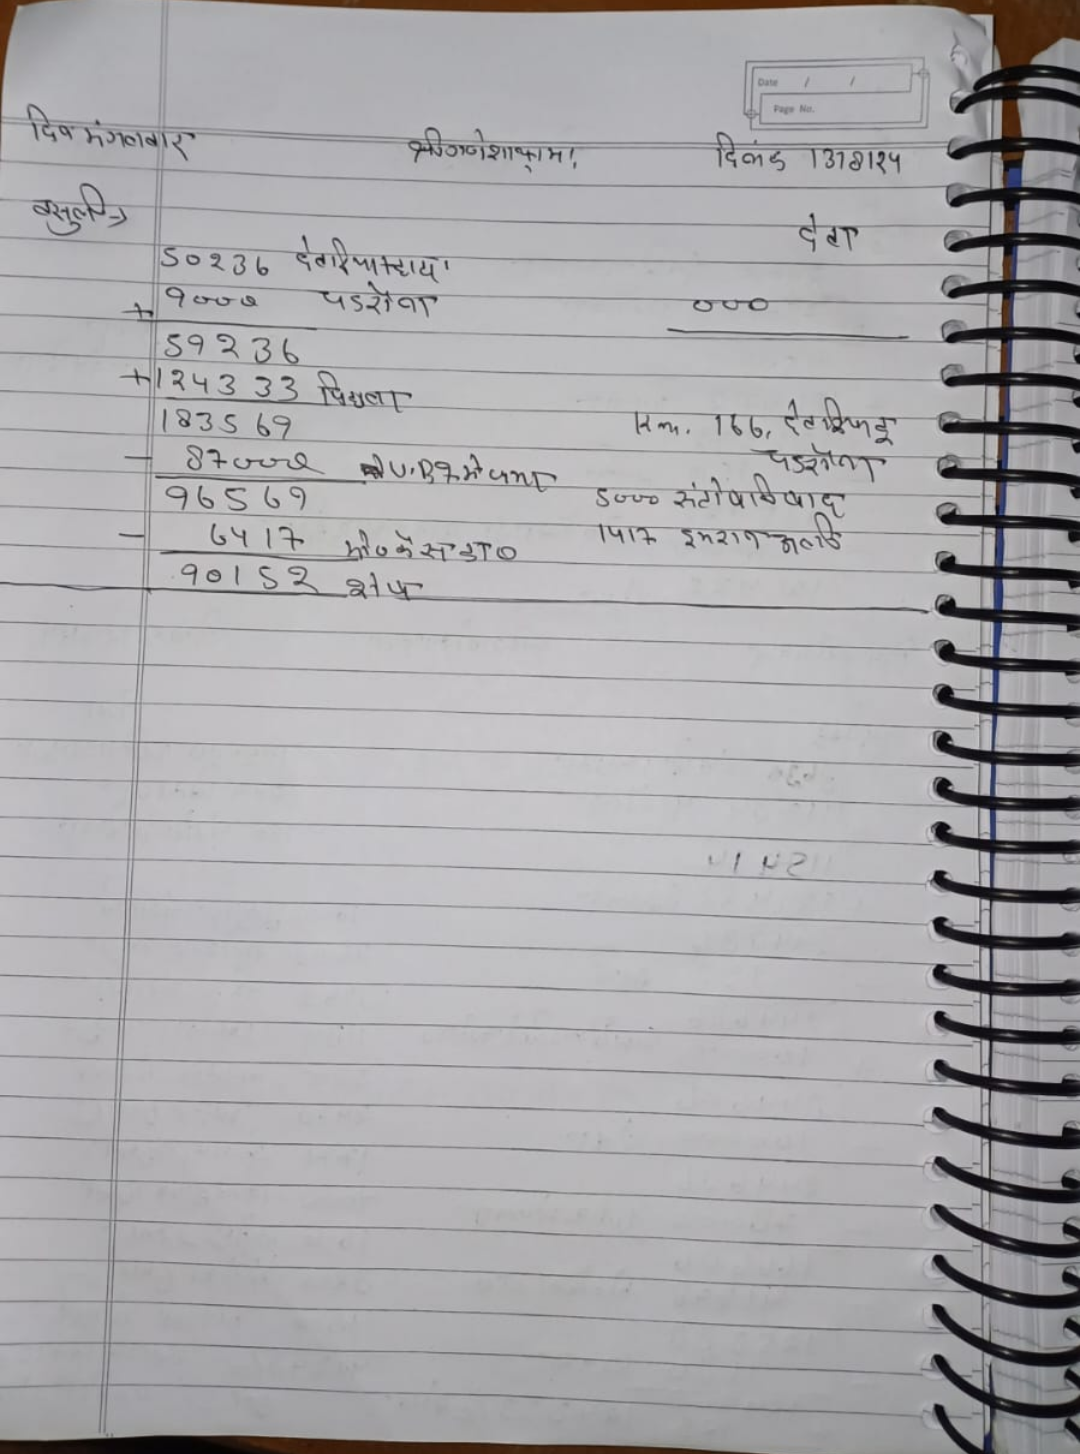 Date / /
Page No.
दिन मंगलवार श्री गणेशाय नमः दिनांक 13/8/24
वसुली→ देवा
50236 देवरिया
+ 9000 पडरौना 000
59236
+ 124333 पिछला
183569 Km. 166, देवरिया
- 87000 U.B में जमा पडरौना
96569 5000 संतोष निषाद
- 6417 1417 इमरान अली
90152 शेष